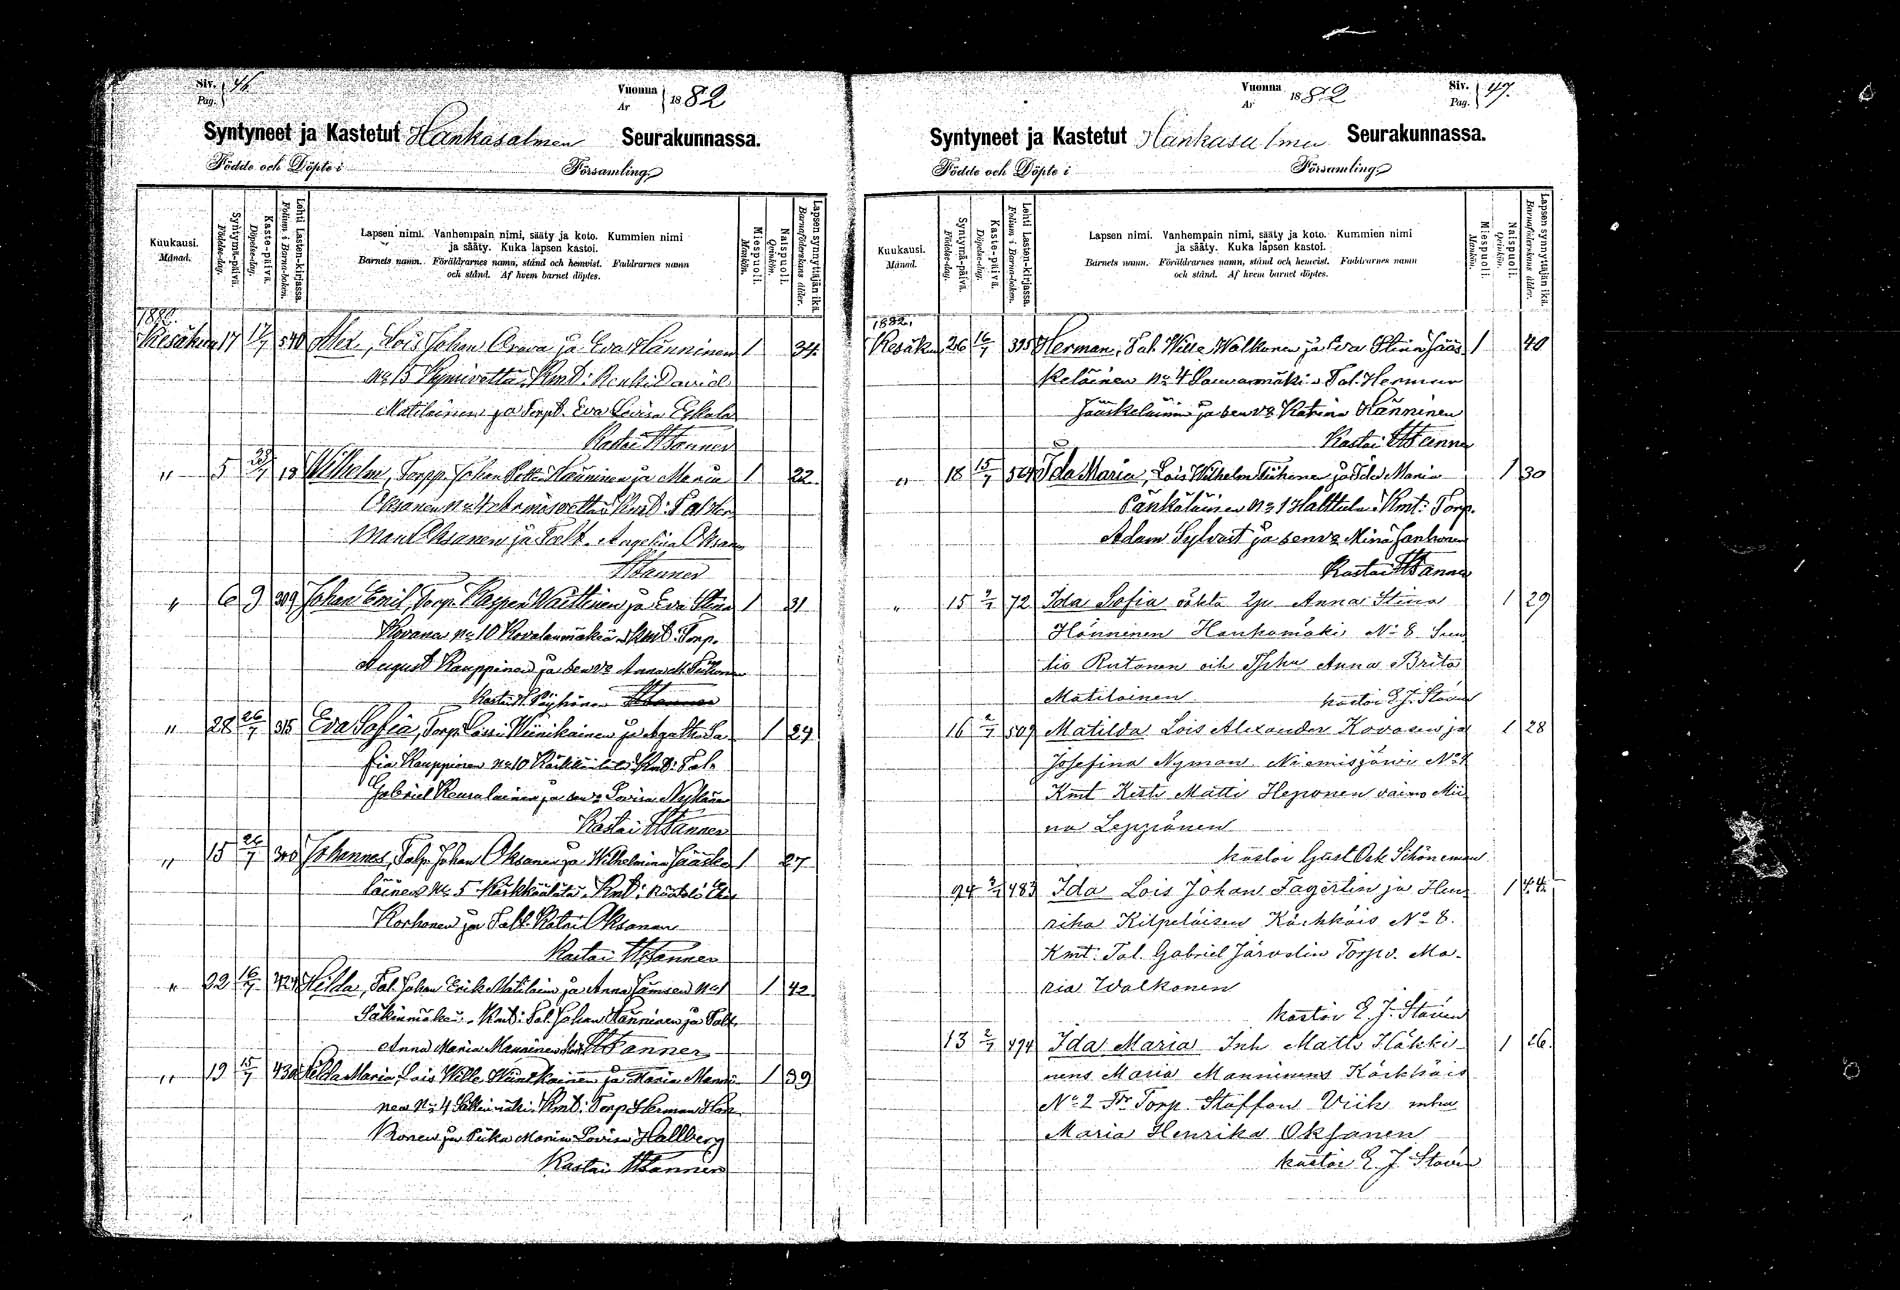 Siv. Pag. 46
Vuonna År 1882
Syntyneet ja Kastetut Hankasalmen Seurakunnassa.
Födde och Döpte i Församling.
Kuukausi. Månad.
Syntymä-päivä. Födelse-dag.
Kaste-päivä. Döpelse-dag.
Lehti Lasten-kirjassa. Folium i Barna-boken.
Lapsen nimi. Vanhempain nimi, sääty ja koto. Kummien nimi
ja sääty. Kuka lapsen kastoi.
Barnets namn. Föräldrarnes namn, stånd och hemvist. Faddrarnes namn
och stånd. Af hvem barnet döptes.
Miespuoli. Mankön.
Naispuoli. Qvinkön.
Lapsen synnyttäjän ikä. Barnaföderskans ålder.
1882.
Kesäkuu 17 17/7 540 Alex, Lois Johan Orava ja Eva Hänninen 1 34
No 15 Kmt: Renki David
Matilainen ja Torpt. Eva Lovisa Eskola
Kastoi HTanner
" 5 13 Wilhelm, Torpp. Johan Petter Hänninen ja Maria 1 22
Oksanen Kmt: Tal Her-
man Oksanen ja Talt. Angelica Oksanen
HTanner
" 6 9 309 Johan Emil, Torp. Kasper Wäittinen ja Eva Stina 1 31
Kovanen No 10 Kovalanmäkiä Kmt: Torp.
August Kauppinen ja sen vo Anna M.
Kastoi
" 28 26/7 315 Eva Sofia, Torp. Lassi Wiinikainen ja Agatha So- 1 24
fia Kauppinen No 10 Kmt: Tal.
Gabriel ja sen vo Lovisa Nykänen
Kastoi HTanner
" 15 26/7 300 Johannes, Talp. Johan Oksanen ja Wilhelmina Jääske- 1 27
läinen No 5 Kmt:
Korhonen ja Talt. Katri Oksanen
Kastoi HTanner
" 22 16/7 424 Hilda, Tal. Johan Erik Matilain ja Anna Jämsen No 1 1 42
Säkinmäkeä. Kmt: Tal. Johan Hänninen ja Talt.
Anna Maria Manninen HTanner
" 19 15/7 430 Hilda Maria, Lois Wille Wiinikainen ja Maria Manni- 1 39
nen No 4 Kmt: Torp Herman Hon-
konen ja Piika Maria Lovisa Hallberg
Kastoi HTanner
Vuonna År 1882
Siv. Pag. 47.
Syntyneet ja Kastetut Hankasalmen Seurakunnassa.
Födde och Döpte i Församling.
Kuukausi. Månad.
Syntymä-päivä. Födelse-dag.
Kaste-päivä. Döpelse-dag.
Lehti Lasten-kirjassa. Folium i Barna-boken.
Lapsen nimi. Vanhempain nimi, sääty ja koto. Kummien nimi
ja sääty. Kuka lapsen kastoi.
Barnets namn. Föräldrarnes namn, stånd och hemvist. Faddrarnes namn
och stånd. Af hvem barnet döptes.
Miespuoli. Mankön.
Naispuoli. Qvinkön.
Lapsen synnyttäjän ikä. Barnaföderskans ålder.
1882.
Kesäkuu 26 16/7 395 Herman, Tal. Wille Walkonen ja Eva Stina Jääs- 1 40
keläinen No 4 Tal. Herman
Jääskeläinen ja sen vo Katrina Hänninen
Kastoi HTanner
" 18 15/7 564 Ida Maria, Lois Wilhelm Tiihonen ja Ida Maria 1 30
Pänkäläinen No 1 Halttula Kmt: Torp.
Adam Sylvast ja sen vo Mina Janhonen
Kastoi HTanner
" 15 2/7 72 Ida Sofia oäkta Ip. Anna Stina 1 29
Hänninen Hankamäki No 8.
Rutanen och Anna Brita
Matilainen kastoi E. J. Stavén
16 2/7 509 Matilda Lois Alexander Kovasen ja 1 28
Josefina Nyman Niemisjärvi No 4
Kmt Kestk Matti Heponen vaimo Mii-
na Leppänen
kastoi Gust Osk Schöneman
24 3/7 483 Ida Lois Johan Fagertin ja Hen- 1 44
rika Kilpeläisen Kärkkäis No 8.
Kmt: Tal. Gabriel Järvelin Torpv. Ma-
ria Walkonen
kastoi E. J. Stavén
13 2/7 494 Ida Maria Inh Matts Häkki- 1 26.
nens Maria Manninens Kärkkäis
No 2 Fr Torp. Staffan Viik mhu
Maria Henrika Oksanen
kastoi E. J. Stavén